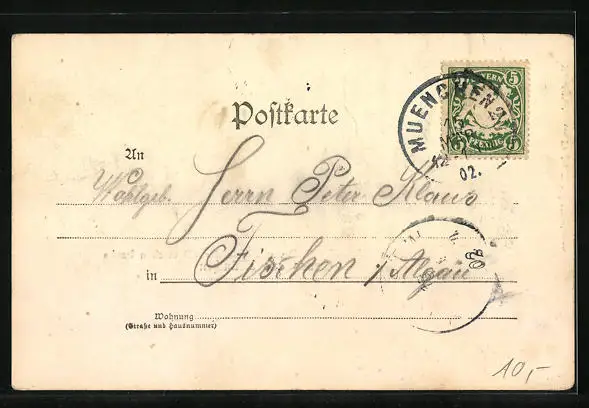 BAYERN 5
MUENCHEN
02.
Postkarte
An
Wohlgeb. Herrn Peter Klaus
in Fischen i/Algäu
02
Wohnung
(Straße und Hausnummer)
10,-